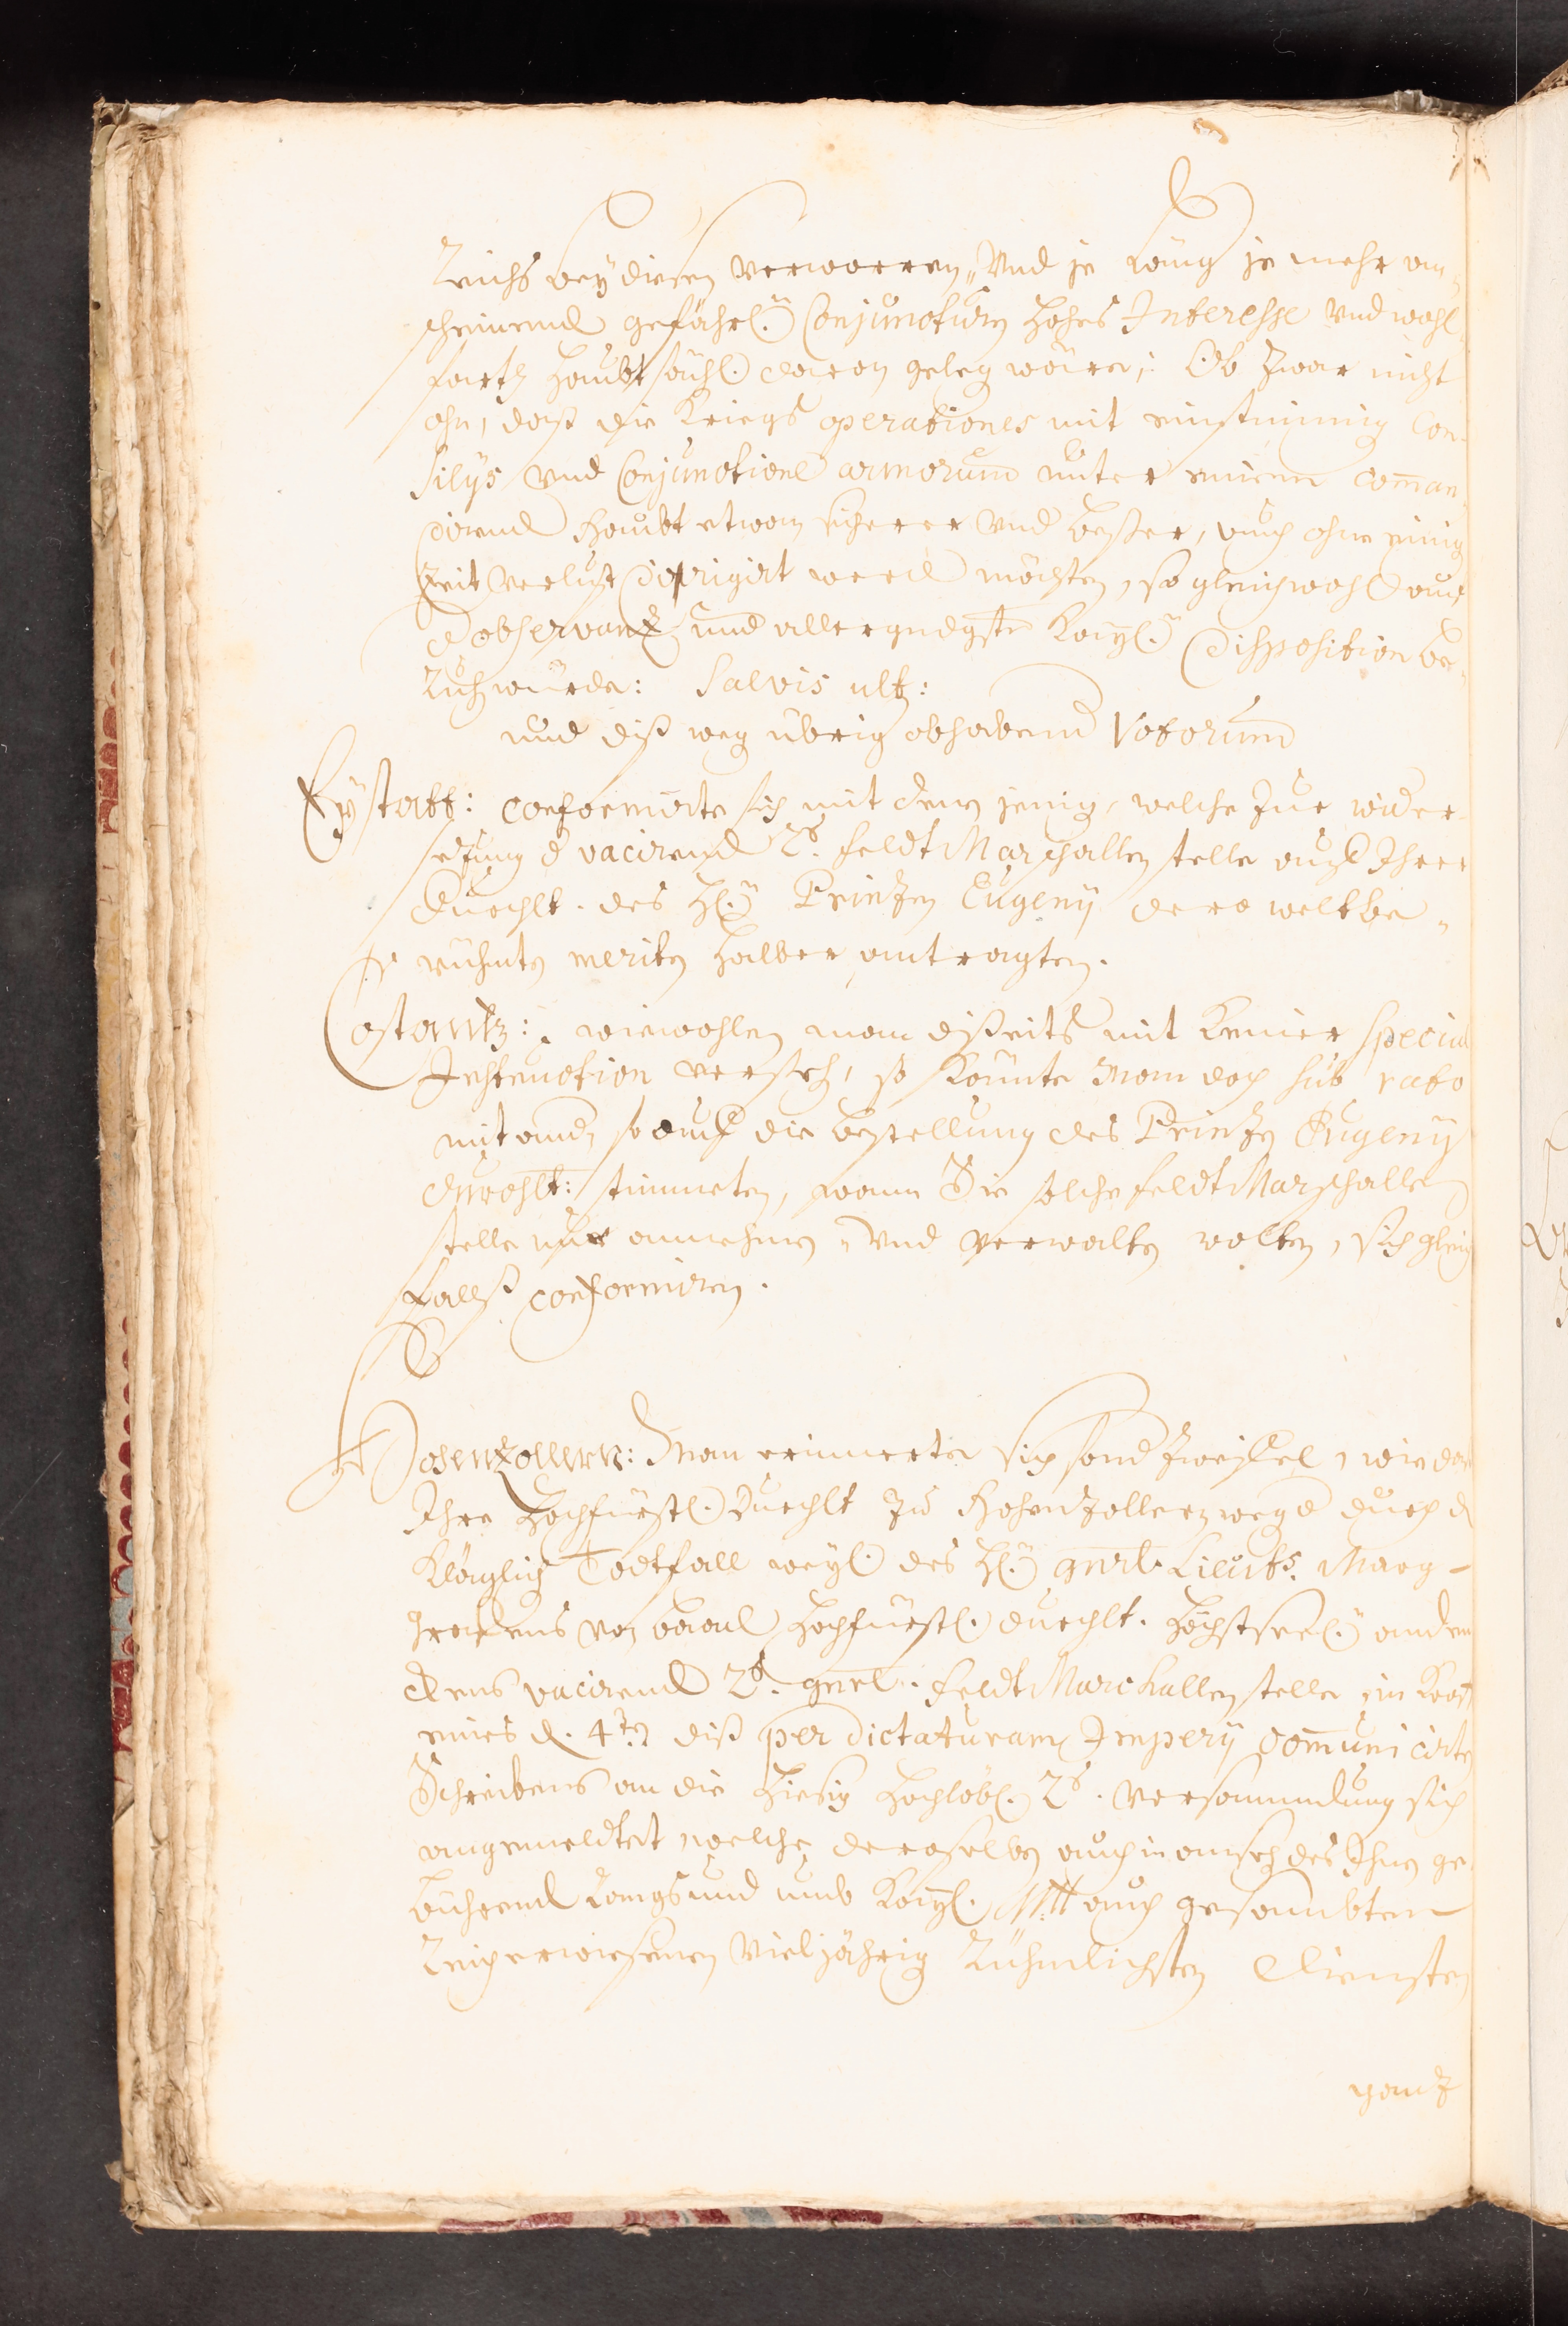 Reichs bey diesen verworren„ Und je läng je mehr an„
scheinend gefährl. Conjuncturn hohes Interesse und wohl„
farth haubtsächl. daran geleg wäre; Ob zwar nicht
ohn, daß die Kriegs operationes mit einstimmig Con„
silijs und Conjunctione armorum unter einem comman„
dirend Haubt etwan sicherer und besser, auch ohne einig
Zeit verlust dirigirt werd möchten, so gleichwohl auf
d observanz und allergndgste Kaÿl. Disposition be„
ruh würde: Salvis ult:
und diß weg übrig obhabend Votorum
Eystatt: conformirte sich mit denen jenig, welche zur wider„
setzung d vacirend Rs. feldt Marschallen stelle auf Ihrer
Durchlt. des H. Prinzen Eugenij dero weltbe„
rühmte meriten halber antragten.
Costantz: wiewohlen man disseits mit keiner special
Instruction verseh, so könnte man doch sub rato
mit and, so auf die bestellung des Prinzen Eugenij
durchlt: stimmeten, wann Sie solche feldt Marschallen
stelle nur annehmen„ und verwalten wolten, sich gleich
falls conformiren.
Hohenzollern: Man erinnerte sich sond Zweiffel, wie das
Ihre Hochfürstl. Durchlt zu Hohenzollern wegen durch d
kläglich Todtfall weyl. des H. gnrl. Lieuts. Marg„
grafens von baad Hochfürstl. durchlt. höchstseel. andenc
ckens vacirend Rs. gnrl. feldt Marchallen stelle in Krafft
eines d. 4ten diß per dictaturam Imperij communicirten
Schreibens an die hiesig hochlöbl. Rs. versammdlung sich
angemeldtet, welche deroselben auch in anseh des Ihnen ge„
bührend Rangs und umb Kaÿl. Mtt auch gesambten
Reich erwiesenen vieljährig Rühmlichsten Diensten
ganz